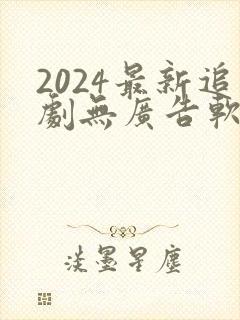 2024最新追
劇無廣告軟
淡墨星塵